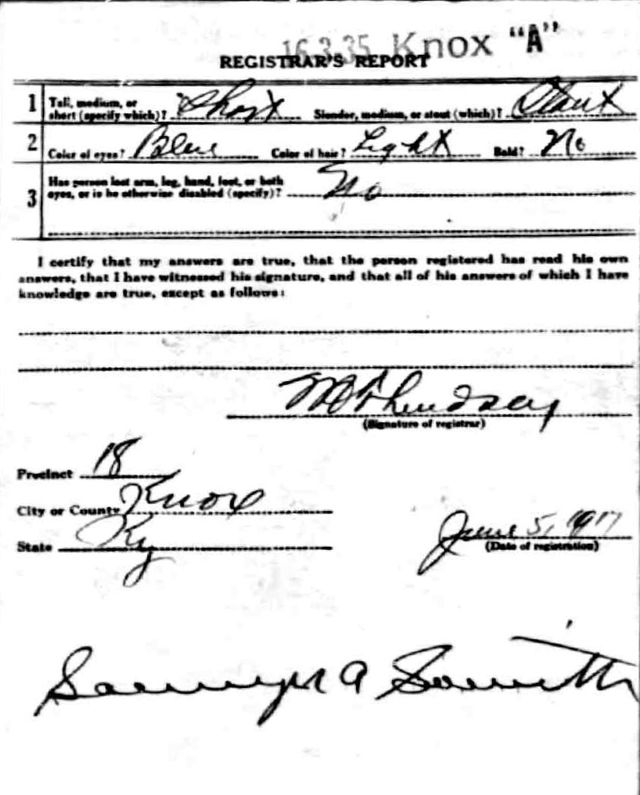 16.3.35 Knox "A"
REGISTRAR'S REPORT
1 Tall, medium, or short (specify which)? Short Slender, medium, or stout (which)? Stout
2 Color of eyes? Blue Color of hair? Light Bald? No
3 Has person lost arm, leg, hand, foot, or both eyes, or is he otherwise disabled (specify)? No
I certify that my answers are true, that the person registered has read his own
answers, that I have witnessed his signature, and that all of his answers of which I have
knowledge are true, except as follows:
Lindsay
(Signature of registrar)
Precinct 18
City or County Knox
State Ky
June 5, 1917
(Date of registration)
A Smith